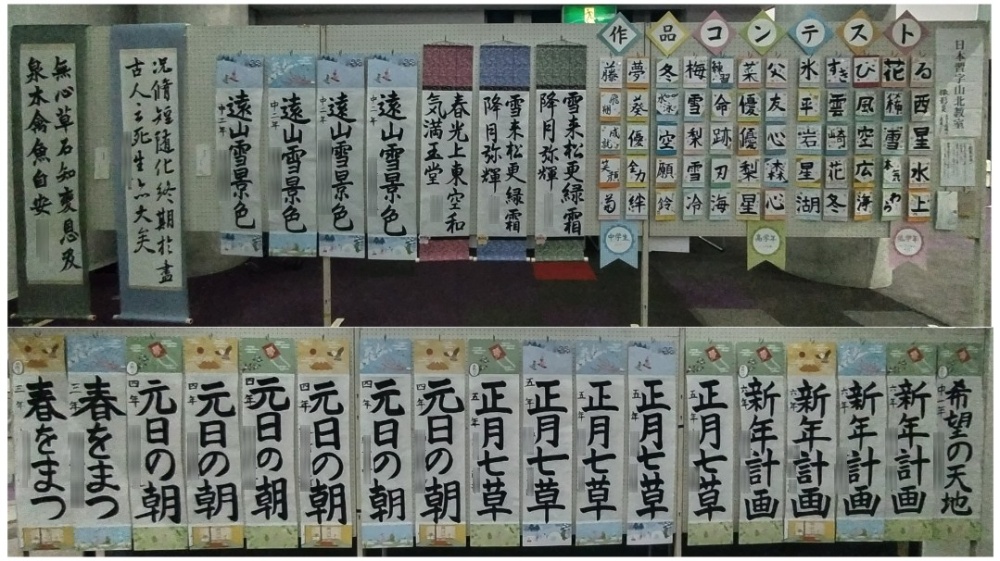 作品コンテスト
日本習字山北教室
藤 夢 冬 梅 菜 父 氷 すき び 花 る
飛翔 葵 雪 命 優 友 平 雲 風 西
成就 優 空 梨 跡 優 心 岩 崎 空 雪 星
笑顔 全力 願 雪 刃 梨 森 星 花 広 水
菊 絆 鈴 冷 海 星 心 湖 冬 海 わら 上
中学生
高学年
低学年
雪来松更緑霜
降月弥輝
雪来松更緑霜
降月弥輝
春光上東空和
気満玉堂
遠山雪景色
中二年
遠山雪景色
中二年
遠山雪景色
中二年
遠山雪景色
中二年
況脩短随化終期於盡
古人云死生亦大矣
無心草石知変恩及
泉水禽魚自安
希望の天地
中一年
新年計画
六年
新年計画
六年
新年計画
六年
新年計画
六年
正月七草
五年
正月七草
五年
正月七草
五年
正月七草
五年
正月七草
五年
元日の朝
四年
元日の朝
四年
元日の朝
四年
元日の朝
四年
元日の朝
四年
元日の朝
四年
春をまつ
三年
春をまつ
三年